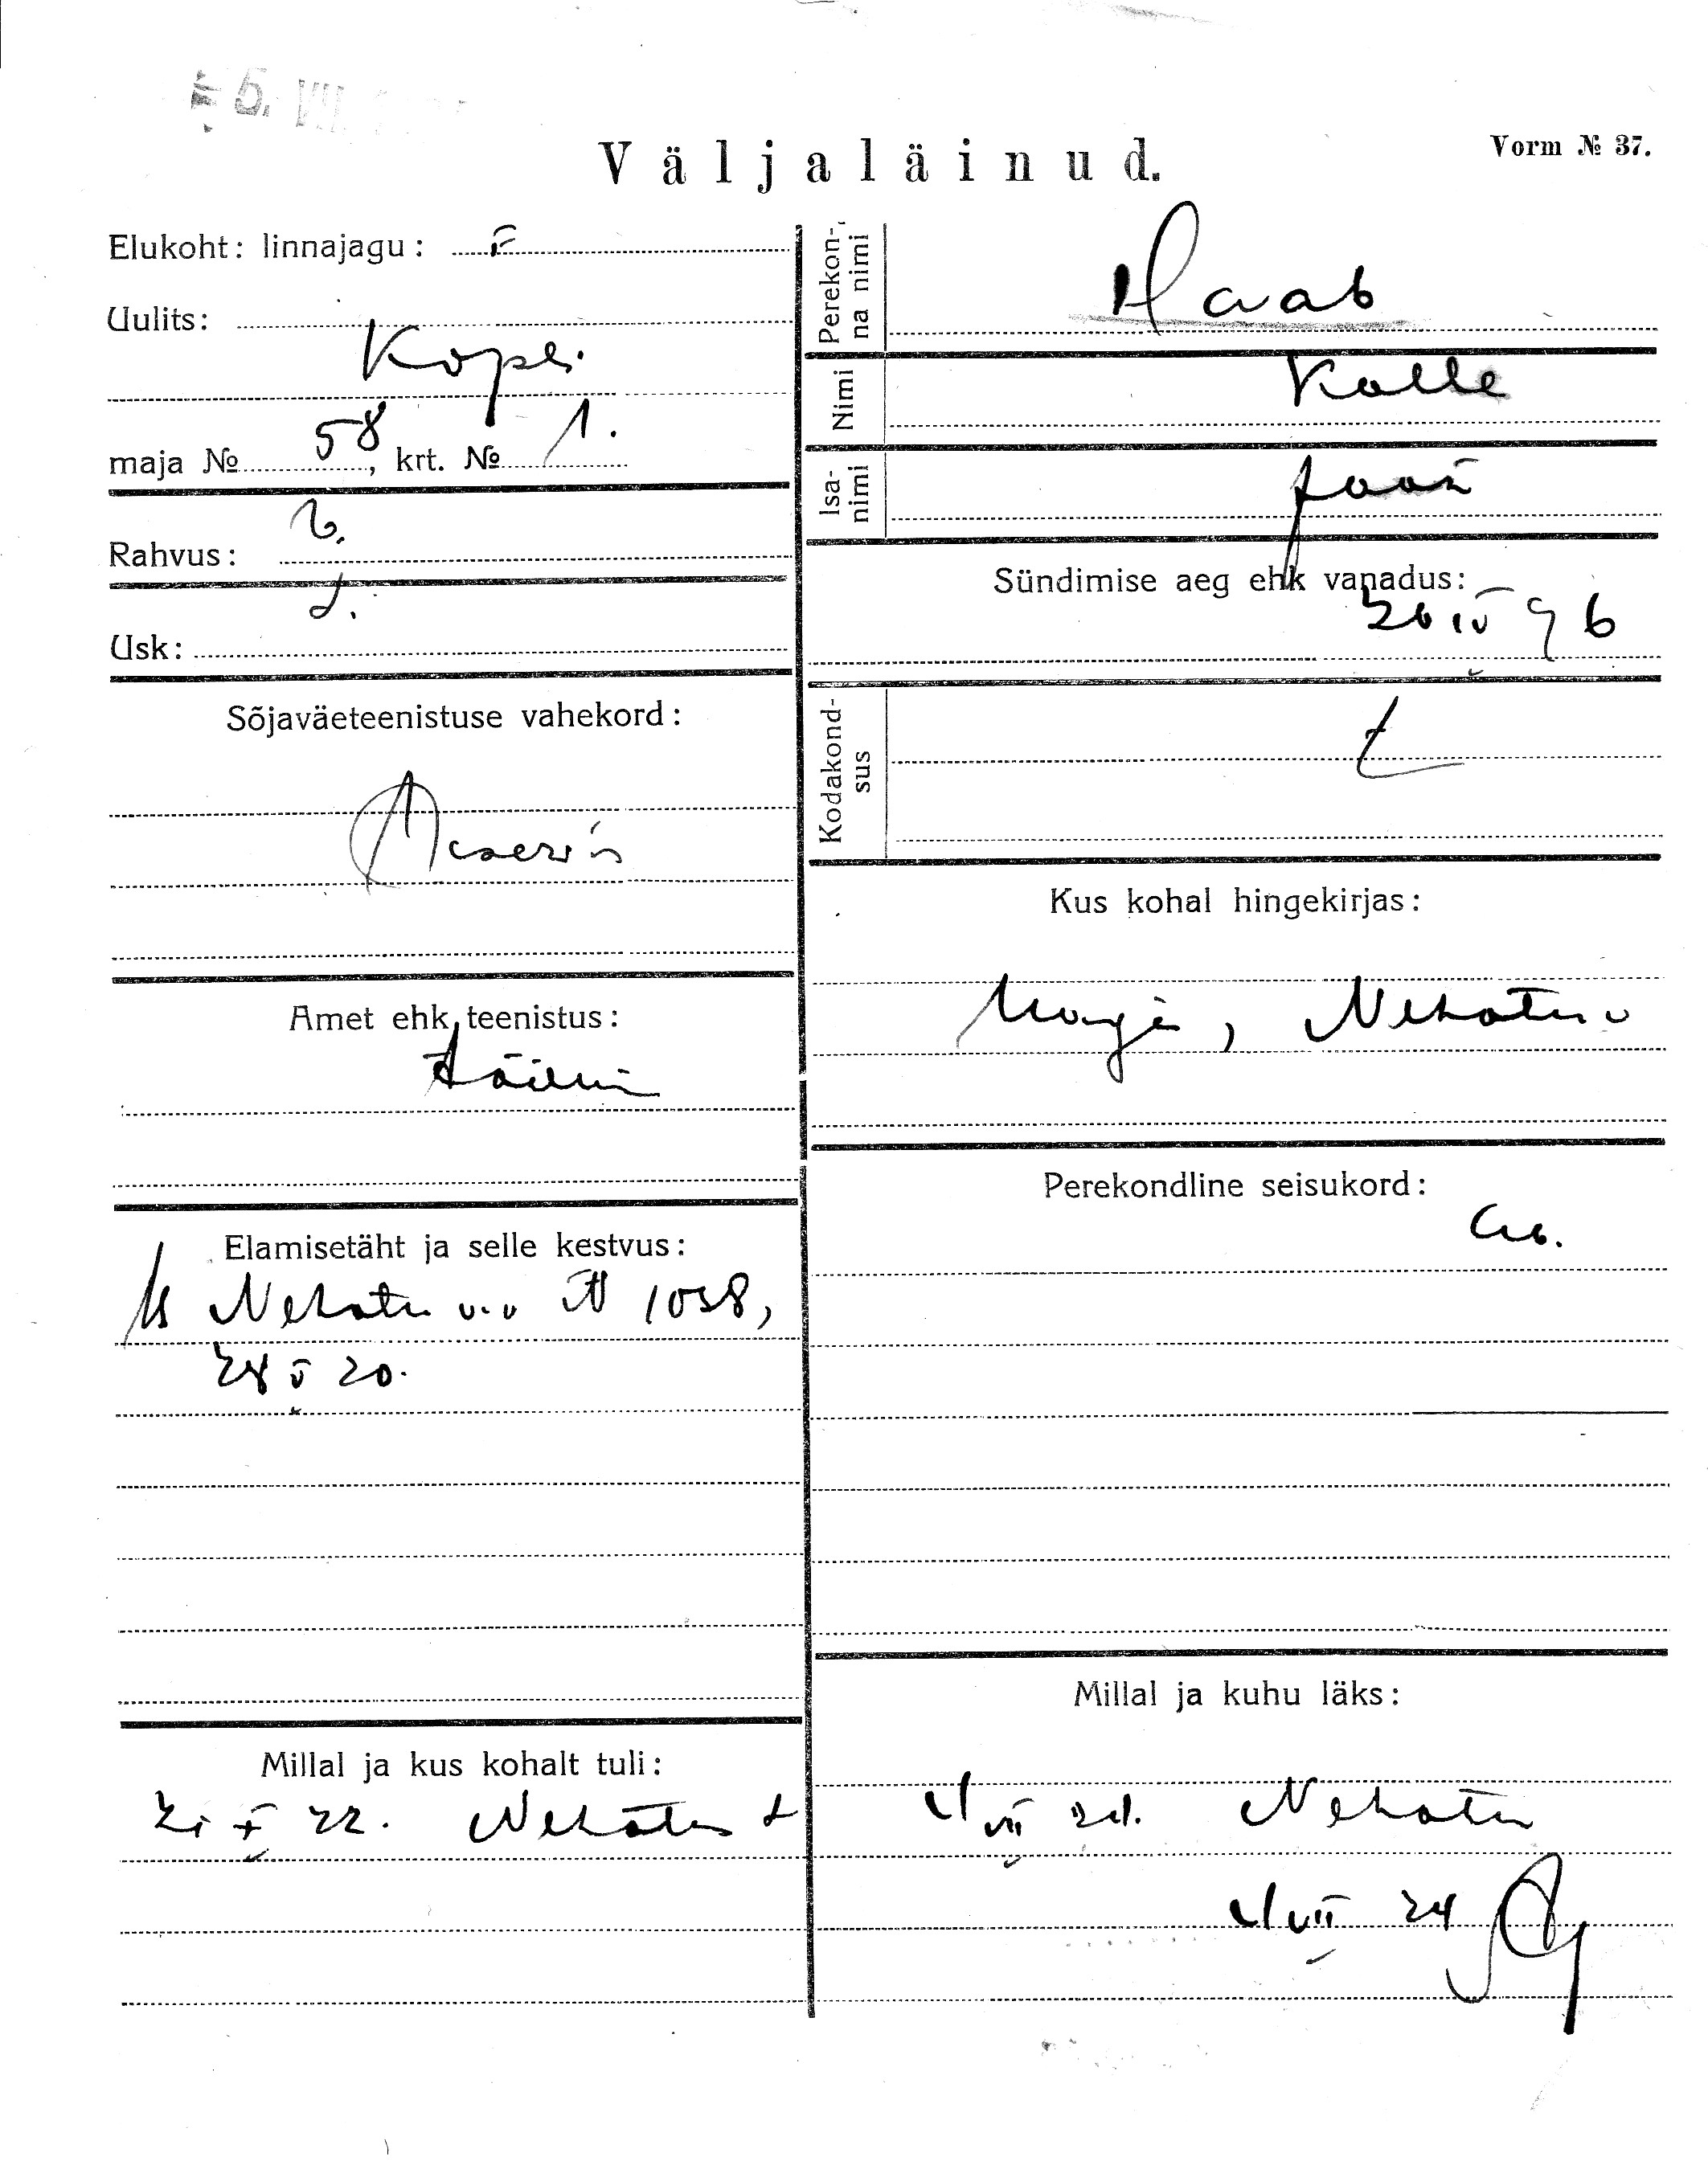 5. VII.
Väljaläinud.
Vorm № 37.
Elukoht: linnajagu:
Uulits:
Kopli
maja № 58, krt. № 1.
Rahvus:
Usk:
Sõjaväeteenistuse vahekord:
Amet ehk teenistus:
Elamisetäht ja selle kestvus:
Nehatu v.v № 1038,
28 V 20.
Millal ja kus kohalt tuli:
21 X 22. Nehatu
Perekonna nimi
Haab
Nimi
Kalle
Isanimi
Jaan
Sündimise aeg ehk vanadus:
26 IV 96
Kodakondsus
Kus kohal hingekirjas:
Harju, Nehatu v
Perekondline seisukord:
Millal ja kuhu läks:
VII 24. Nehatu
VII 24